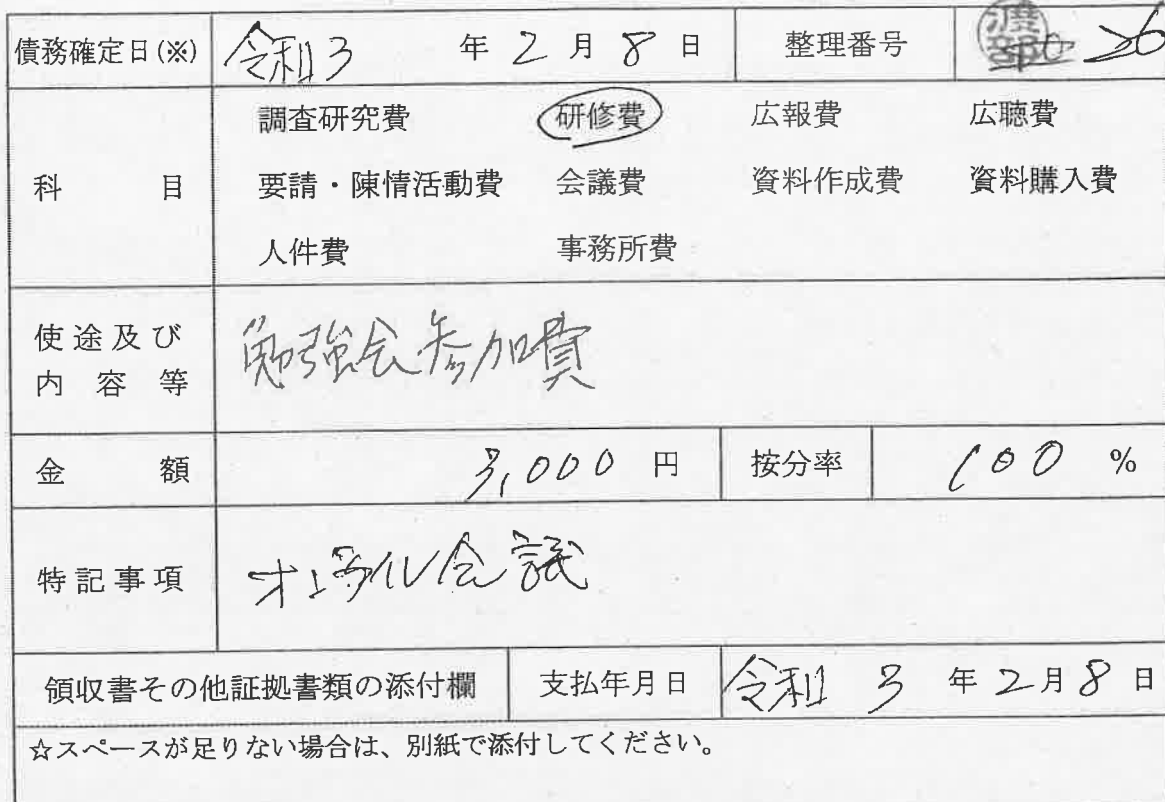 債務確定日(※) 令和3 年 2 月 8 日 整理番号 渡部 26
科目 調査研究費 研修費 広報費 広聴費
要請・陳情活動費 会議費 資料作成費 資料購入費
人件費 事務所費
使途及び内容等 勉強会参加費
金額 3,000 円 按分率 100 %
特記事項 オンライン会議
領収書その他証拠書類の添付欄 支払年月日 令和 3 年 2 月 8 日
☆スペースが足りない場合は、別紙で添付してください。